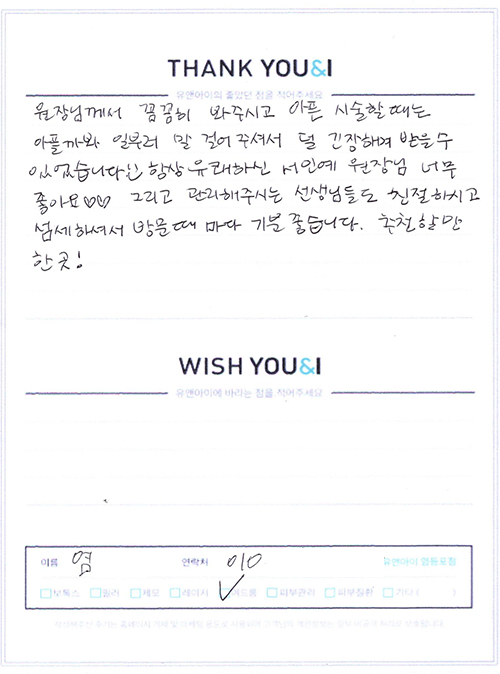 THANK YOU&I
유앤아이의 좋았던 점을 적어주세요
원장님께서 꼼꼼히 봐주시고 아픈 시술할때는
아플까봐 일부러 말 걸어주셔서 덜 긴장해서 받을수
있었습니다 항상 유쾌하신 서인예 원장님 너무
좋아요♡♡ 그리고 관리해주시는 선생님들도 친절하시고
섬세하셔서 방문때 마다 기분 좋습니다. 추천할만
한곳!
WISH YOU&I
유앤아이에 바라는 점을 적어주세요
이름 염 연락처 010 유앤아이 영등포점
보톡스 필러 제모 레이저 여드름 피부관리 피부질환 기타 ( )